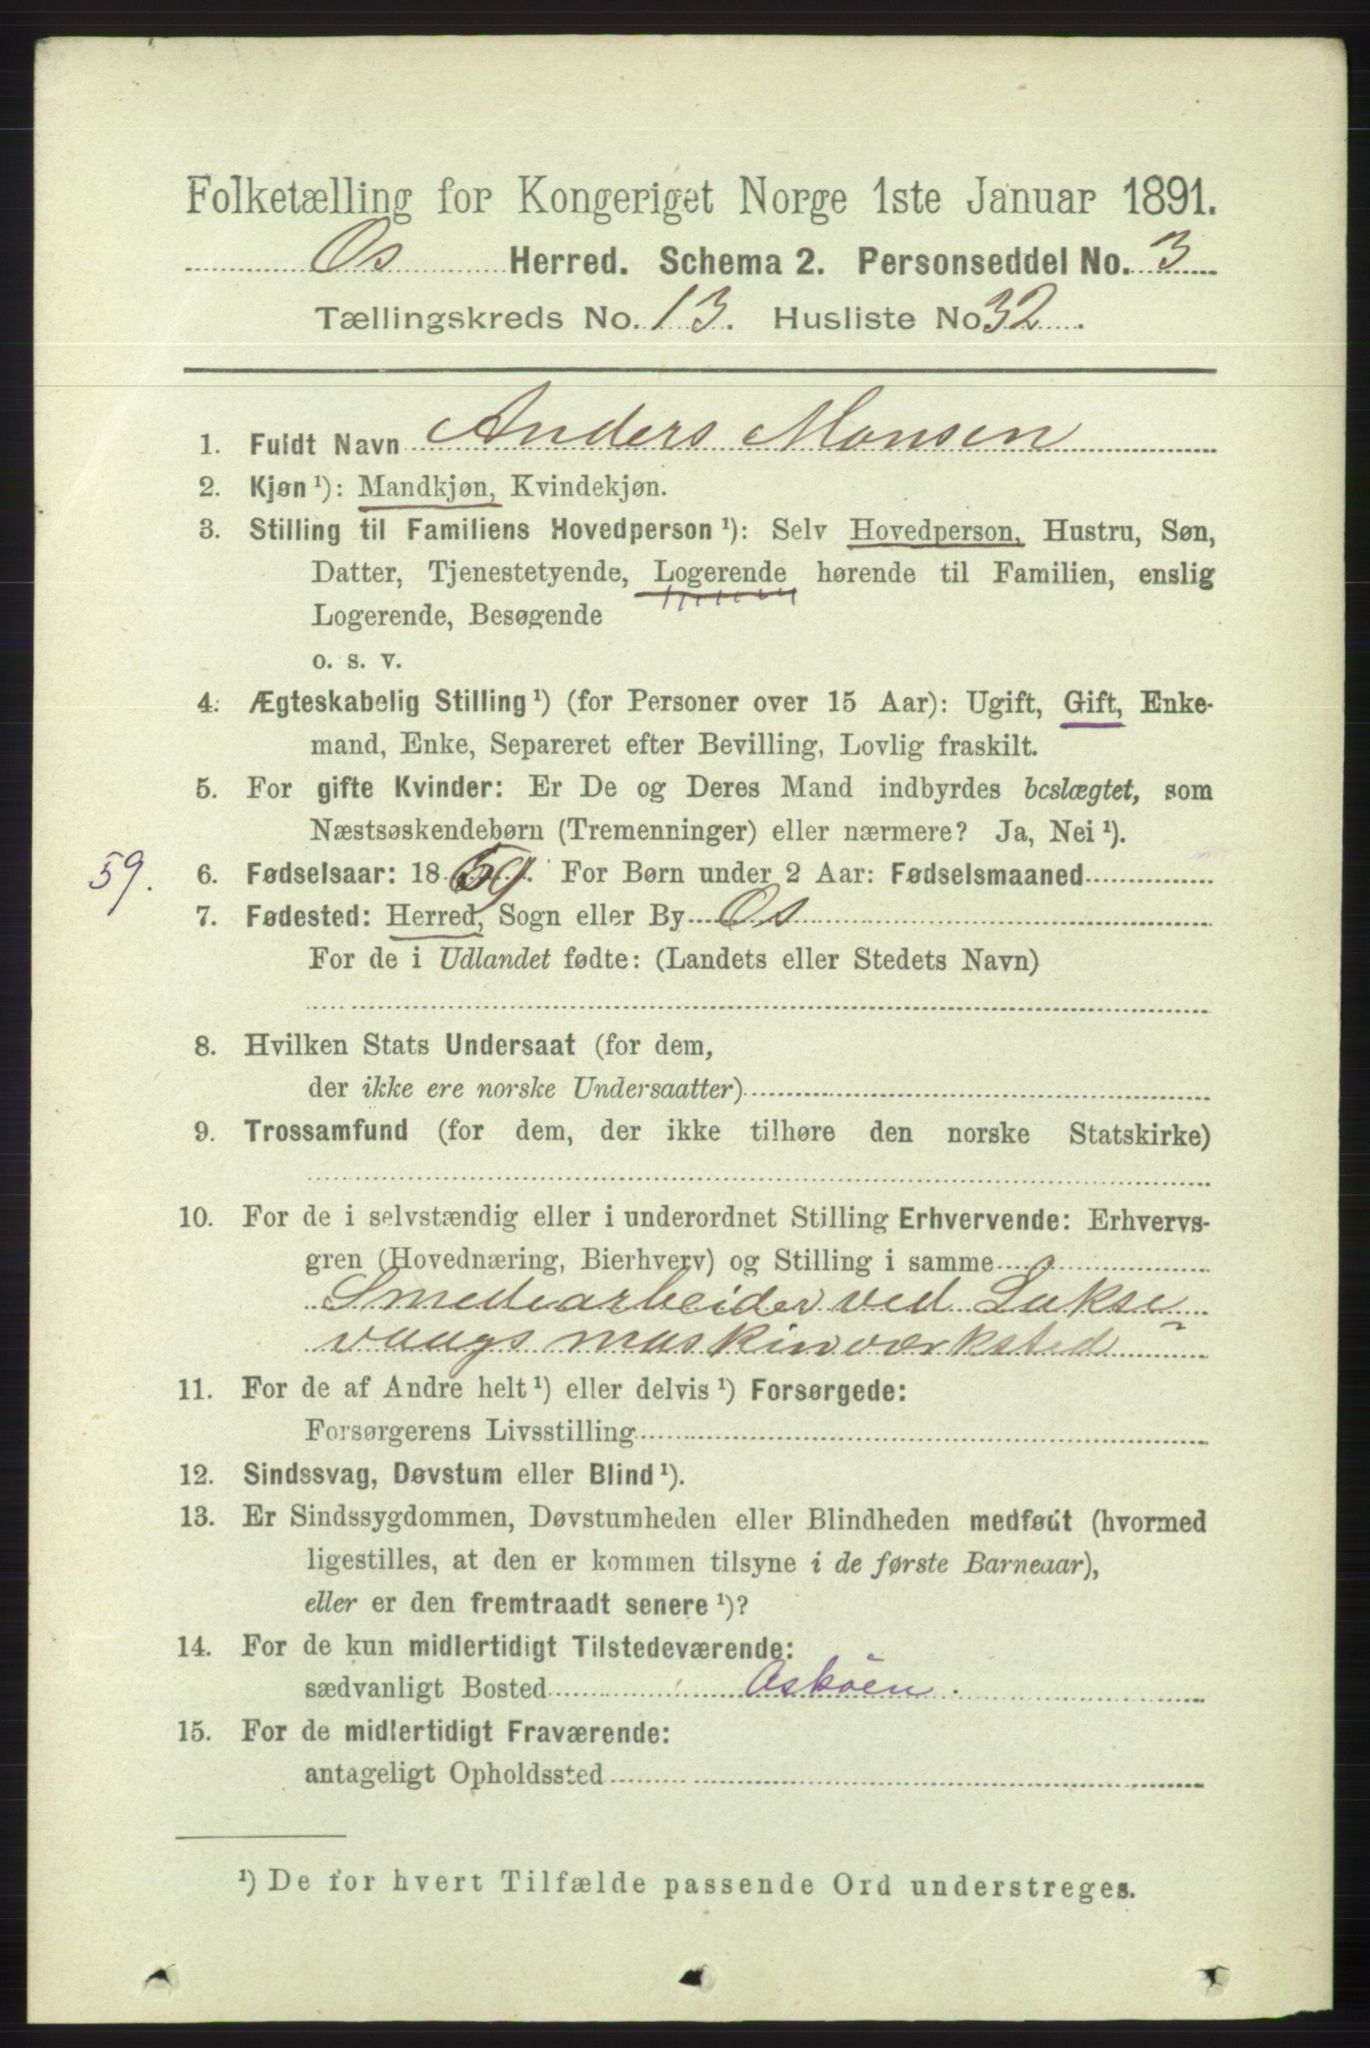 Folketælling for Kongeriget Norge 1ste Januar 1891.
Os Herred. Schema 2. Personseddel No. 3
Tællingskreds No. 13. Husliste No 32.
1. Fuldt Navn Anders Monsen
2. Kjøn ¹): Mandkjøn, Kvindekjøn.
3. Stilling til Familiens Hovedperson ¹): Selv Hovedperson, Hustru, Søn,
Datter, Tjenestetyende, Logerende hørende til Familien, enslig
Logerende, Besøgende
o. s. v.
4. Ægteskabelig Stilling ¹) (for Personer over 15 Aar): Ugift, Gift, Enke-
mand, Enke, Separeret efter Bevilling, Lovlig fraskilt.
5. For gifte Kvinder: Er De og Deres Mand indbyrdes beslægtet, som
Næstsøskendebørn (Tremenninger) eller nærmere? Ja, Nei ¹).
59. 6. Fødselsaar: 1859. For Børn under 2 Aar: Fødselsmaaned
7. Fødested: Herred, Sogn eller By Os
For de i Udlandet fødte: (Landets eller Stedets Navn)
8. Hvilken Stats Undersaat (for dem,
der ikke ere norske Undersaatter)
9. Trossamfund (for dem, der ikke tilhøre den norske Statskirke)
10. For de i selvstændig eller i underordnet Stilling Erhvervende: Erhvervs-
gren (Hovednæring, Bierhverv) og Stilling i samme
Smediearbeider ved Lakse
vaags maskinværksted
11. For de af Andre helt ¹) eller delvis ¹) Forsørgede:
Forsørgerens Livsstilling
12. Sindssvag, Døvstum eller Blind ¹).
13. Er Sindssygdommen, Døvstumheden eller Blindheden medfødt (hvormed
ligestilles, at den er kommen tilsyne i de første Barneaar),
eller er den fremtraadt senere ¹)?
14. For de kun midlertidigt Tilstedeværende:
sædvanligt Bosted Askøen.
15. For de midlertidigt Fraværende:
antageligt Opholdssted
¹) De for hvert Tilfælde passende Ord understreges.